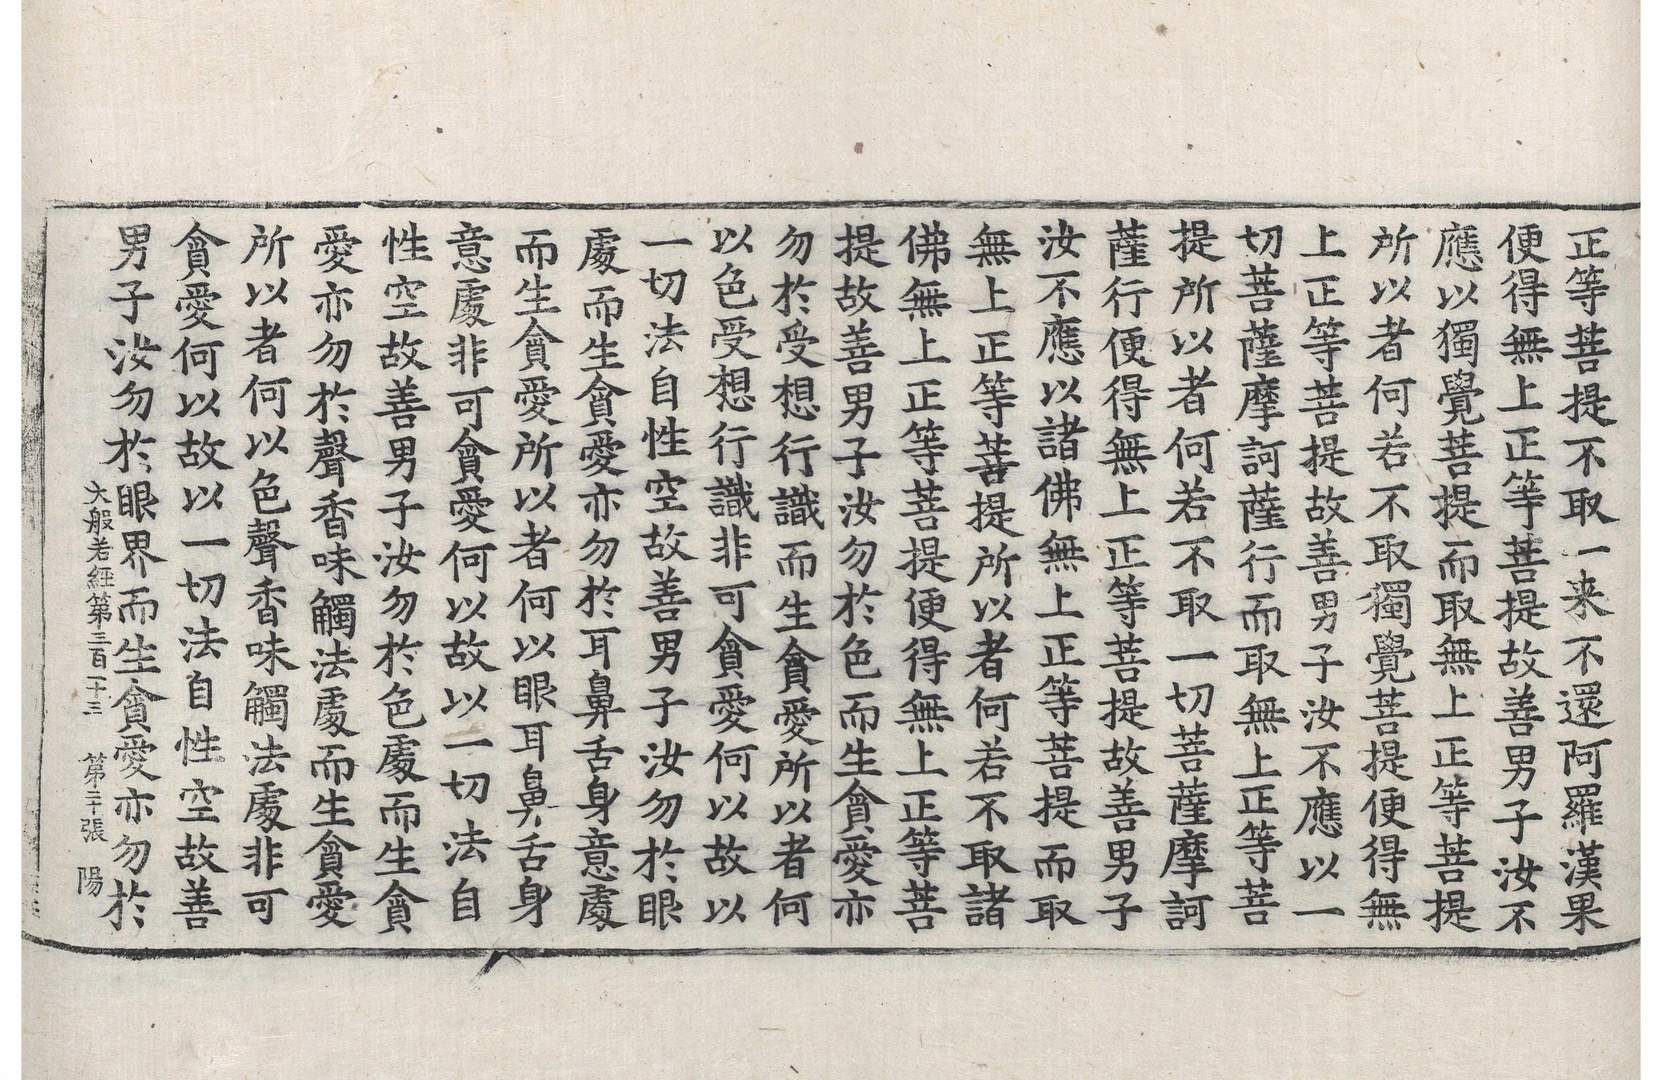 正等菩提不取一来不還阿羅漢果
便得無上正等菩提故善男子汝不
應以獨覺菩提而取無上正等菩提
所以者何若不取獨覺菩提便得無
上正等菩提故善男子汝不應以一
切菩薩摩訶薩行而取無上正等菩
提所以者何若不取一切菩薩摩訶
薩行便得無上正等菩提故善男子
汝不應以諸佛無上正等菩提而取
無上正等菩提所以者何若不取諸
佛無上正等菩提便得無上正等菩
提故善男子汝勿於色而生貪愛亦
勿於受想行識而生貪愛所以者何
以色受想行識非可貪愛何以故以
一切法自性空故善男子汝勿於眼
處而生貪愛亦勿於耳鼻舌身意處
而生貪愛所以者何以眼耳鼻舌身
意處非可貪愛何以故以一切法自
性空故善男子汝勿於色處而生貪
愛亦勿於聲香味觸法處而生貪愛
所以者何以色聲香味觸法處非可
貪愛何以故以一切法自性空故善
男子汝勿於眼界而生貪愛亦勿於
大般若經第三百一十三 第二十張 陽